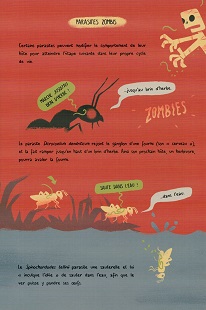 PARASITES ZOMBIS
Certains parasites peuvent modifier le comportement de leur
hôte pour atteindre l'étape suivante dans leur propre cycle
de vie.
MARCHE JUSQU'AU
BRIN D'HERBE !
...jusqu'au brin d'herbe.
ZOMBIES
Le parasite Dicrocoelium dendriticum reçoit le ganglion d'une fourmi (son « cerveau »),
et la fait ramper jusqu'en haut d'un brin d'herbe. Ainsi son prochain hôte, un herbivore,
pourra avaler la fourmi.
SAUTE DANS L'EAU !
...dans l'eau.
Le Spinochordodes tellinii parasite une sauterelle et lui
« inculque l'idée » de sauter dans l'eau, afin que le
ver puisse y pondre ses œufs.